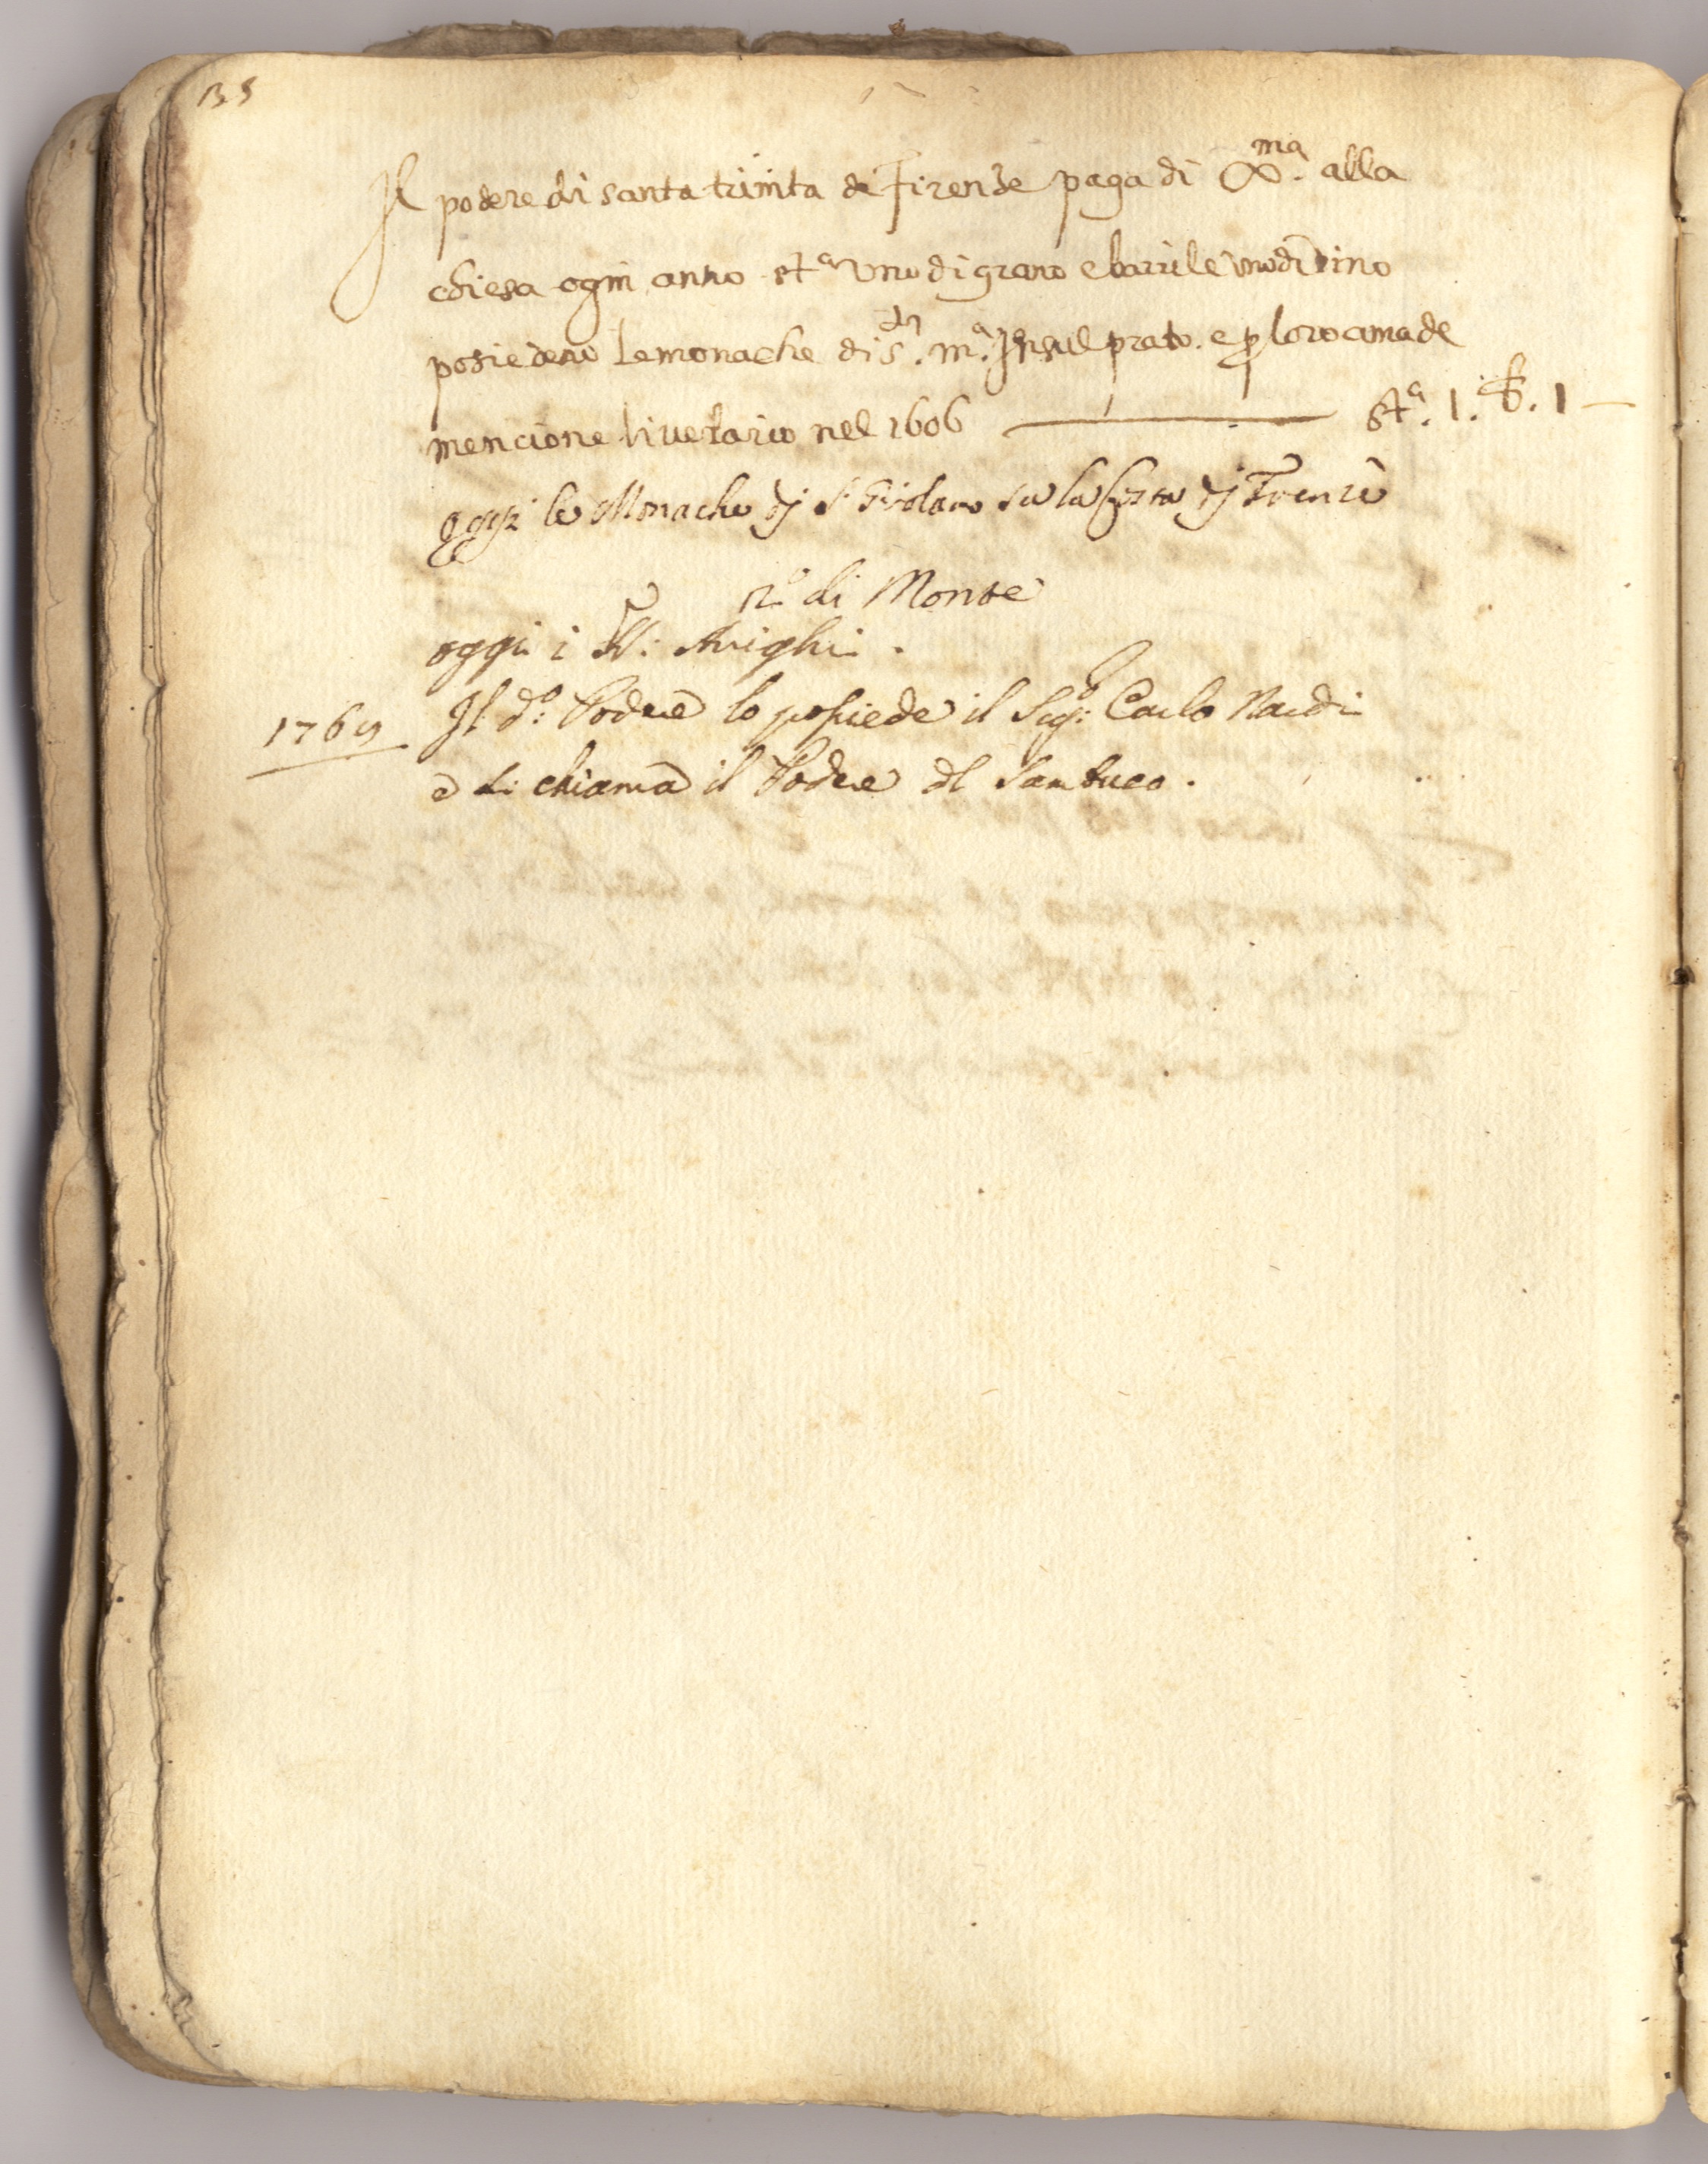 135
Il podere di santa trinita de Firense paga di Xma. alla
chiesa ogni anno sta uno di grano e barile uno di vino
posiedeno le monache di s. ma. In sul prato. e p loro
mencione livelario nel 1606 — sta. 1. b. 1 —
oggi le Monache di S Girolamo su la Costa di Firenze
po di Monte
oggi i SS: Arrighi.
1769 Il do: Podere lo possiede il Sigr: Carlo Nardi
e si chiama il Podere del Sambuco.